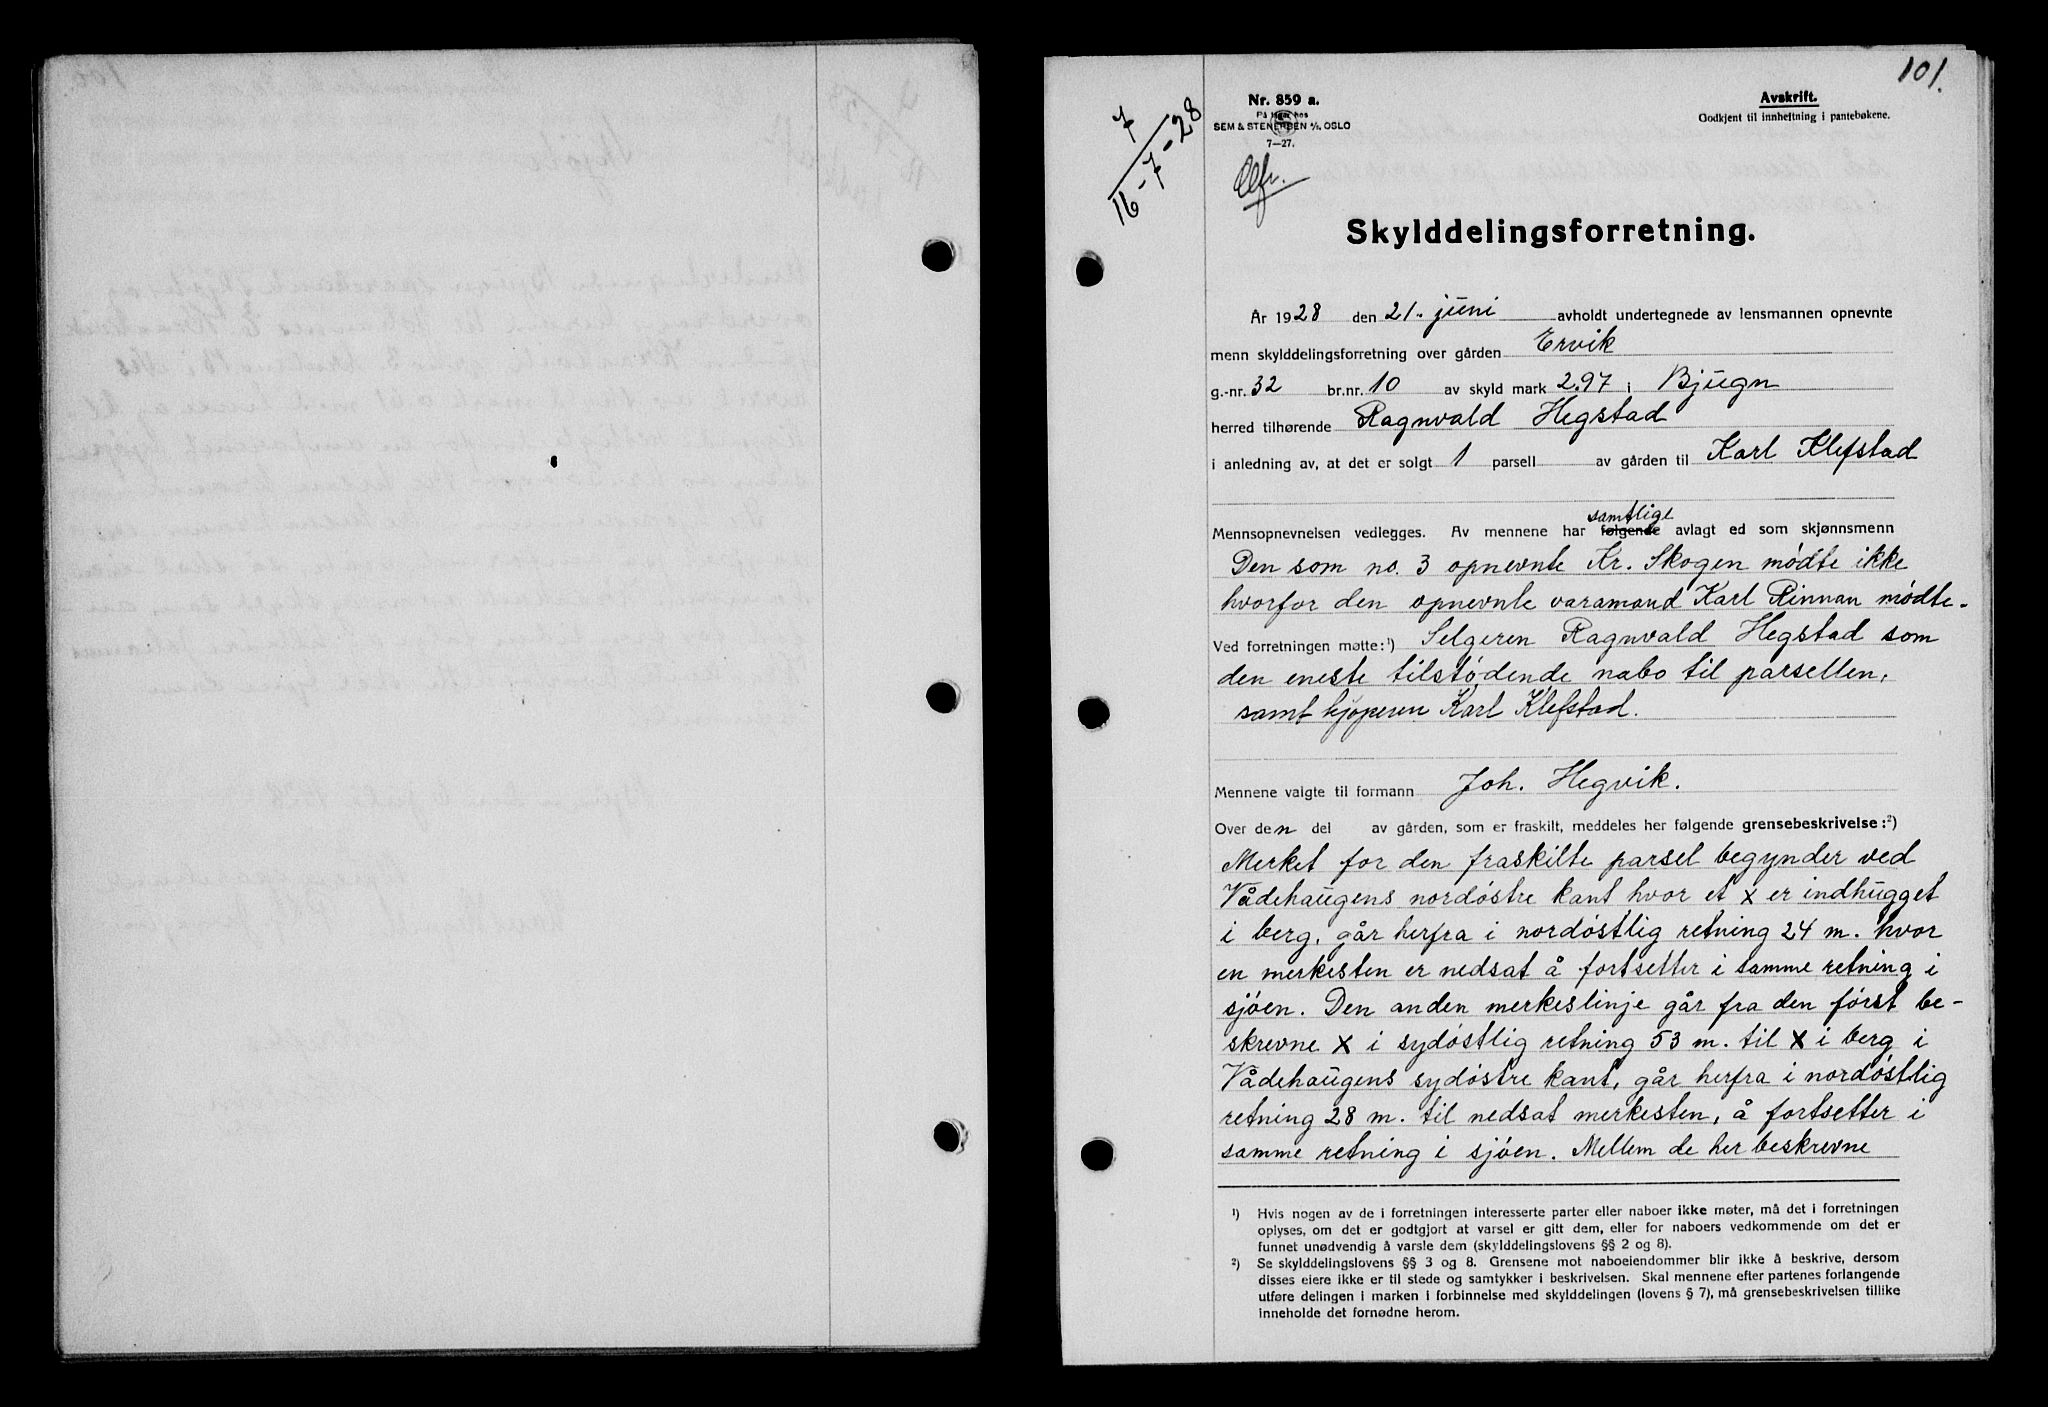 101.
7
16-7-28
Nr. 859 a.
På lager hos
SEM & STENERSEN A/S, OSLO
7—27.
Avskrift.
Godkjent til innheftning i pantebøkene.
Skylddelingsforretning.
År 1928 den 21. juni avholdt undertegnede av lensmannen opnevnte
menn skylddelingsforretning over gården Ervik
g.-nr. 32 br.nr. 10 av skyld mark 2.97 i Bjugn
herred tilhørende Ragnvald Hegstad
i anledning av, at det er solgt 1 parsell av gården til Karl Klefstad
samtlige
Mennsopnevnelsen vedlegges. Av mennene har følgende avlagt ed som skjønnsmenn
Den som no. 3 opnevnte Kr. Skogen mødte ikke
hvorfor den opnevnte varamand Karl Rinnan mødte.
Ved forretningen møtte:¹) Selgeren Ragnvald Hegstad som
den eneste tilstødende nabo til parsellen,
samt kjøperen Karl Klefstad.
Mennene valgte til formann Joh. Hegvik.
Over den del av gården, som er fraskilt, meddeles her følgende grensebeskrivelse:²)
Merket for den fraskilte parsel begynder ved
Vådehaugens nordøstre kant hvor et x er indhugget
i berg, går herfra i nordøstlig retning 24 m. hvor
en merkesten er nedsat å fortsetter i samme retning i
sjøen. Den anden merkeslinje går fra den først be-
skrevne x i sydøstlig retning 53 m. til x i berg i
Vådehaugens sydøstre kant, går herfra i nordøstlig
retning 28 m. til nedsat merkesten, å fortsetter i
samme retning i sjøen. Mellem de her beskrevne
¹) Hvis nogen av de i forretningen interesserte parter eller naboer ikke møter, må det i forretningen
oplyses, om det er godtgjort at varsel er gitt dem, eller for naboers vedkommende om det er
funnet unødvendig å varsle dem (skylddelingslovens §§ 2 og 8).
²) Se skylddelingslovens §§ 3 og 8. Grensene mot naboeiendommer blir ikke å beskrive, dersom
disses eiere ikke er til stede og samtykker i beskrivelsen. Skal mennene efter partenes forlangende
utføre delingen i marken i forbinnelse med skylddelingen (lovens § 7), må grensebeskrivelsen tillike
inneholde det fornødne herom.